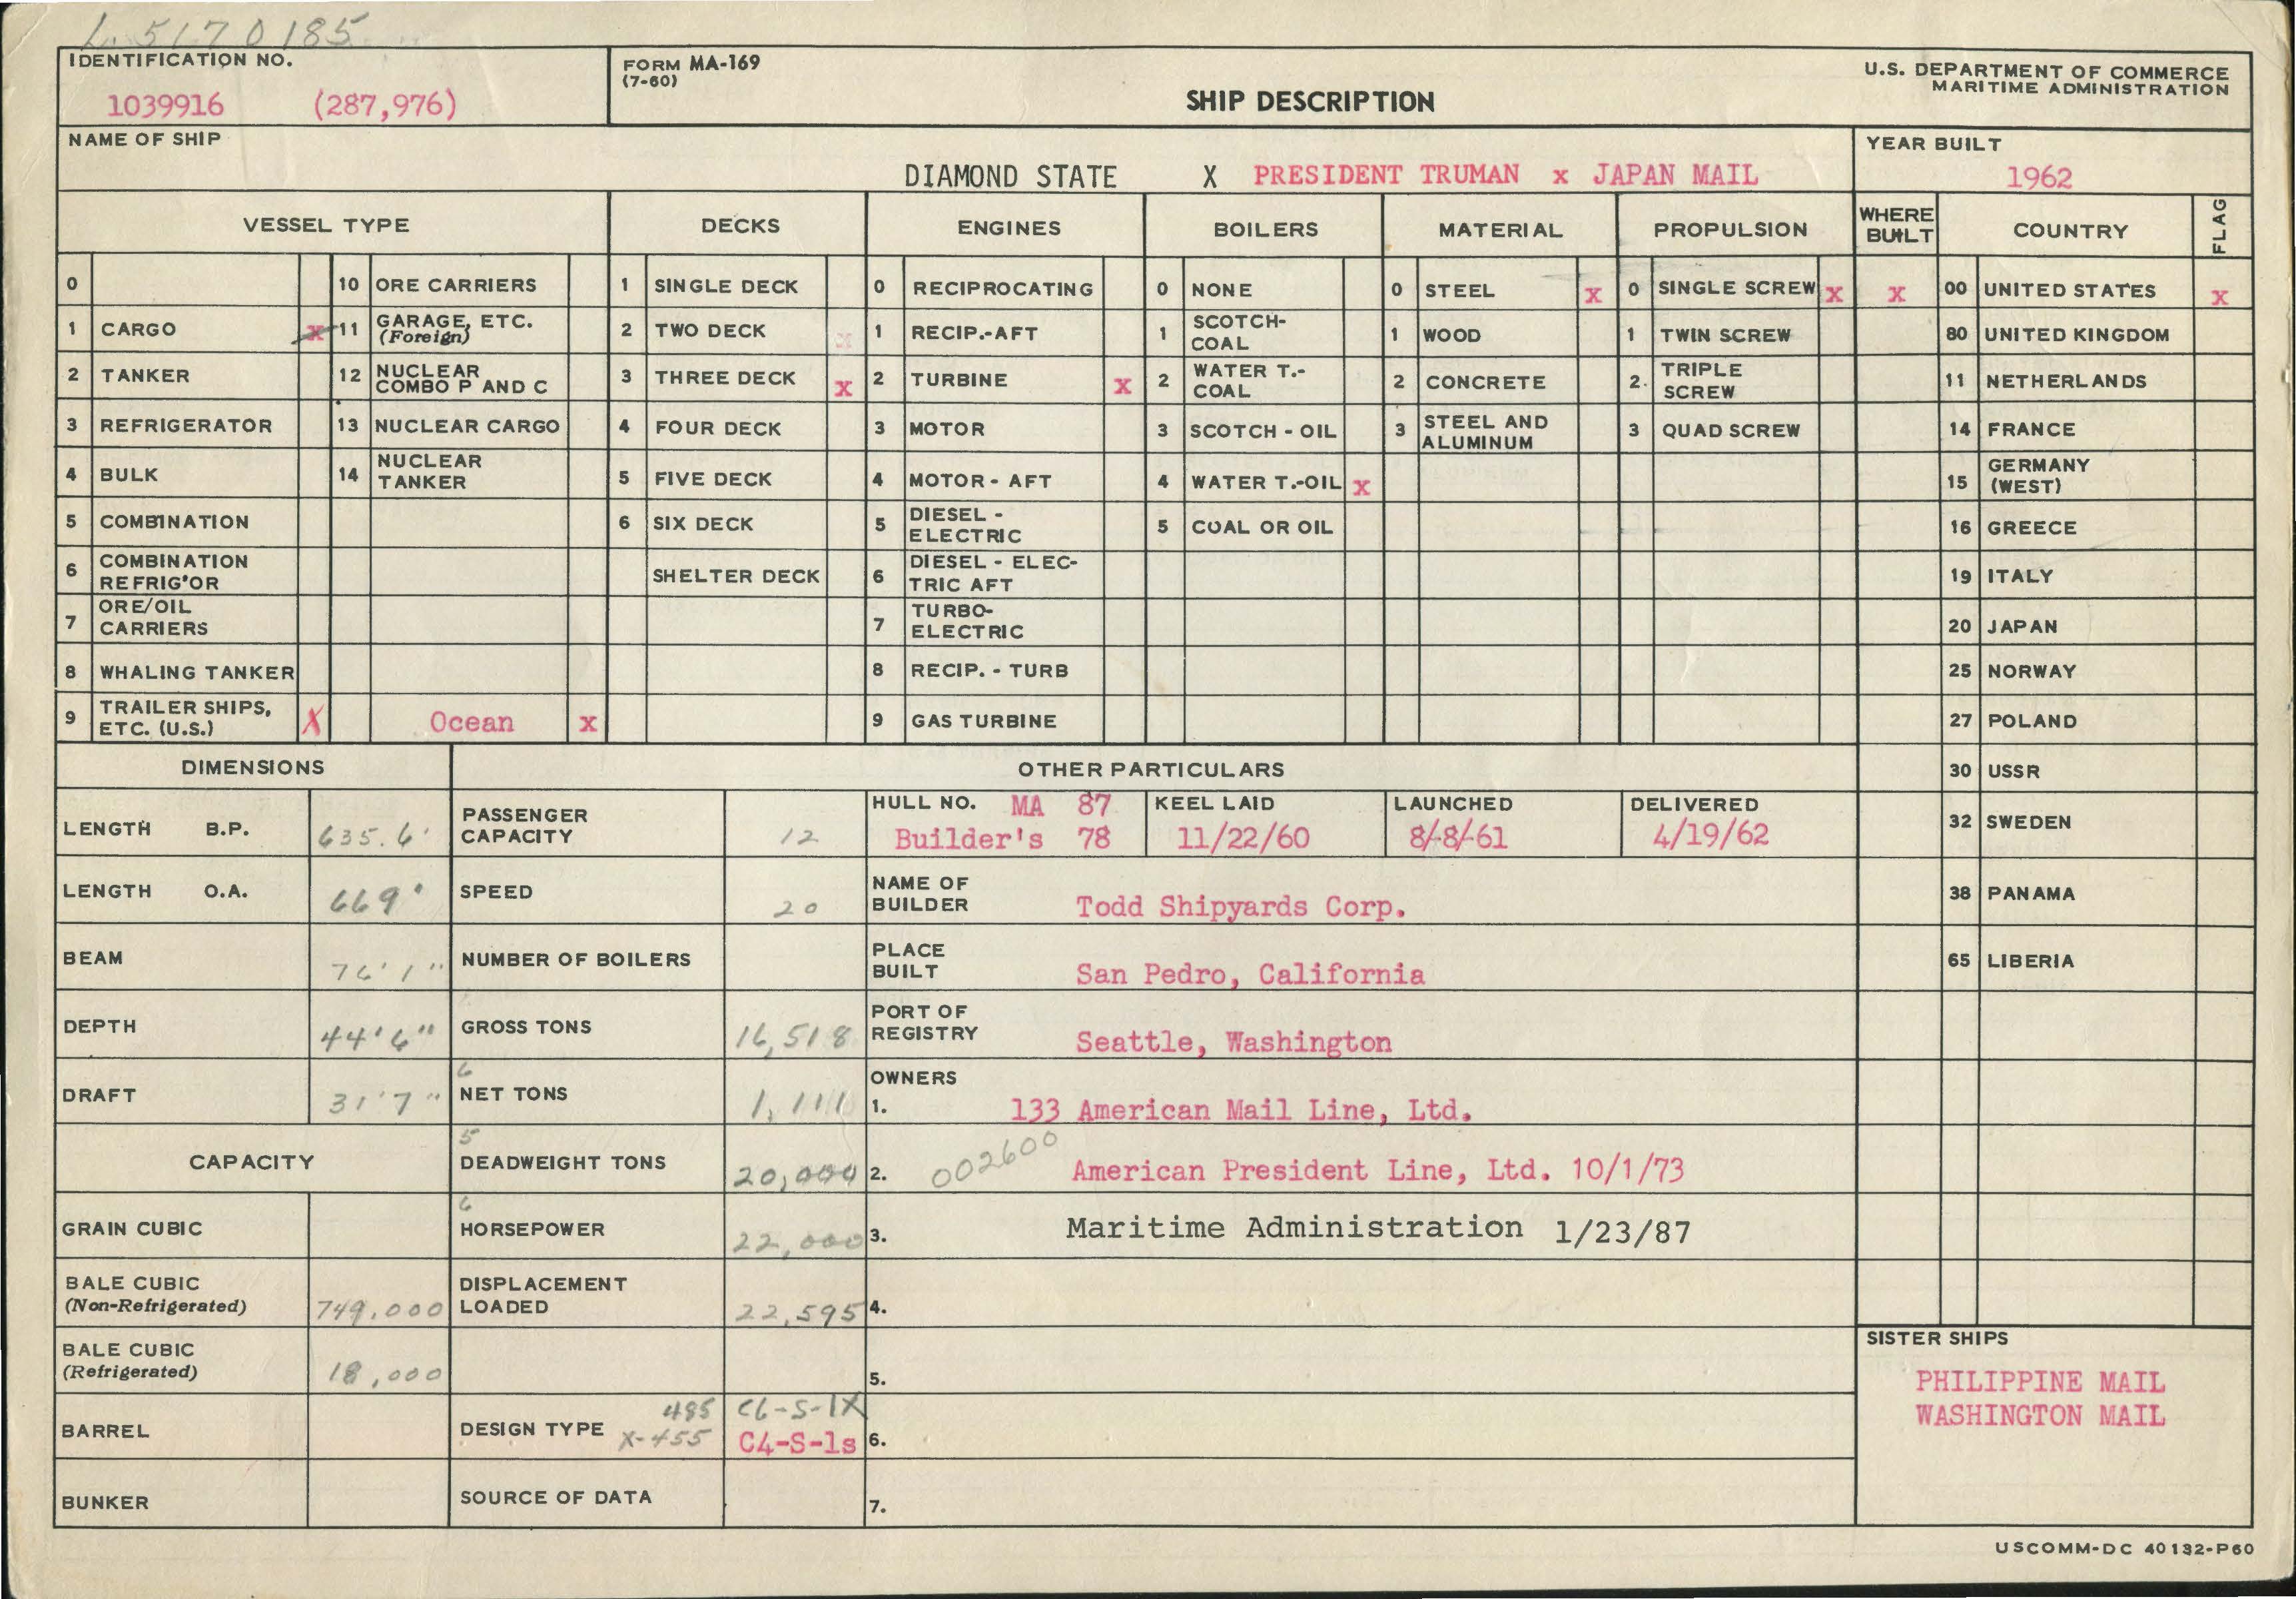 L 5170185
IDENTIFICATION NO.
1039916 (287,976)
FORM MA-169
(7-60)
SHIP DESCRIPTION
U.S. DEPARTMENT OF COMMERCE
MARITIME ADMINISTRATION
NAME OF SHIP
DIAMOND STATE X PRESIDENT TRUMAN x JAPAN MAIL
YEAR BUILT
1962
VESSEL TYPE DECKS ENGINES BOILERS MATERIAL PROPULSION WHERE BUILT COUNTRY FLAG
0 10 ORE CARRIERS 1 SINGLE DECK 0 RECIPROCATING 0 NONE 0 STEEL x 0 SINGLE SCREW x x 00 UNITED STATES x
1 CARGO x 11 GARAGE, ETC. (Foreign) 2 TWO DECK x 1 RECIP.-AFT 1 SCOTCH-COAL 1 WOOD 1 TWIN SCREW 80 UNITED KINGDOM
2 TANKER 12 NUCLEAR COMBO P AND C 3 THREE DECK x 2 TURBINE x 2 WATER T.-COAL 2 CONCRETE 2. TRIPLE SCREW 11 NETHERLANDS
3 REFRIGERATOR 13 NUCLEAR CARGO 4 FOUR DECK 3 MOTOR 3 SCOTCH - OIL 3 STEEL AND ALUMINUM 3 QUAD SCREW 14 FRANCE
4 BULK 14 NUCLEAR TANKER 5 FIVE DECK 4 MOTOR - AFT 4 WATER T.-OIL x 15 GERMANY (WEST)
5 COMBINATION 6 SIX DECK 5 DIESEL - ELECTRIC 5 COAL OR OIL 16 GREECE
6 COMBINATION REFRIG'OR SHELTER DECK 6 DIESEL - ELECTRIC AFT 19 ITALY
7 ORE/OIL CARRIERS 7 TURBO-ELECTRIC 20 JAPAN
8 WHALING TANKER 8 RECIP. - TURB 25 NORWAY
9 TRAILER SHIPS, ETC. (U.S.) X Ocean x 9 GAS TURBINE 27 POLAND
DIMENSIONS OTHER PARTICULARS 30 USSR
LENGTH B.P. 635.6' PASSENGER CAPACITY 12 HULL NO. MA 87 Builder's 78 KEEL LAID 11/22/60 LAUNCHED 8/8/61 DELIVERED 4/19/62 32 SWEDEN
LENGTH O.A. 669' SPEED 20 NAME OF BUILDER Todd Shipyards Corp. 38 PANAMA
BEAM 76'1" NUMBER OF BOILERS PLACE BUILT San Pedro, California 65 LIBERIA
DEPTH 44'6" GROSS TONS 16,518 PORT OF REGISTRY Seattle, Washington
DRAFT 31'7" 6 NET TONS 1,111 OWNERS 1. 133 American Mail Line, Ltd.
CAPACITY 5 DEADWEIGHT TONS 20,000 2. 002600 American President Line, Ltd. 10/1/73
GRAIN CUBIC 6 HORSEPOWER 22,000 3. Maritime Administration 1/23/87
BALE CUBIC (Non-Refrigerated) 749,000 DISPLACEMENT LOADED 22,595 4.
BALE CUBIC (Refrigerated) 18,000 5.
BARREL DESIGN TYPE 485 X-455 C6-S-1X C4-S-1s 6.
BUNKER SOURCE OF DATA 7.
SISTER SHIPS
PHILIPPINE MAIL
WASHINGTON MAIL
USCOMM-DC 40132-P60